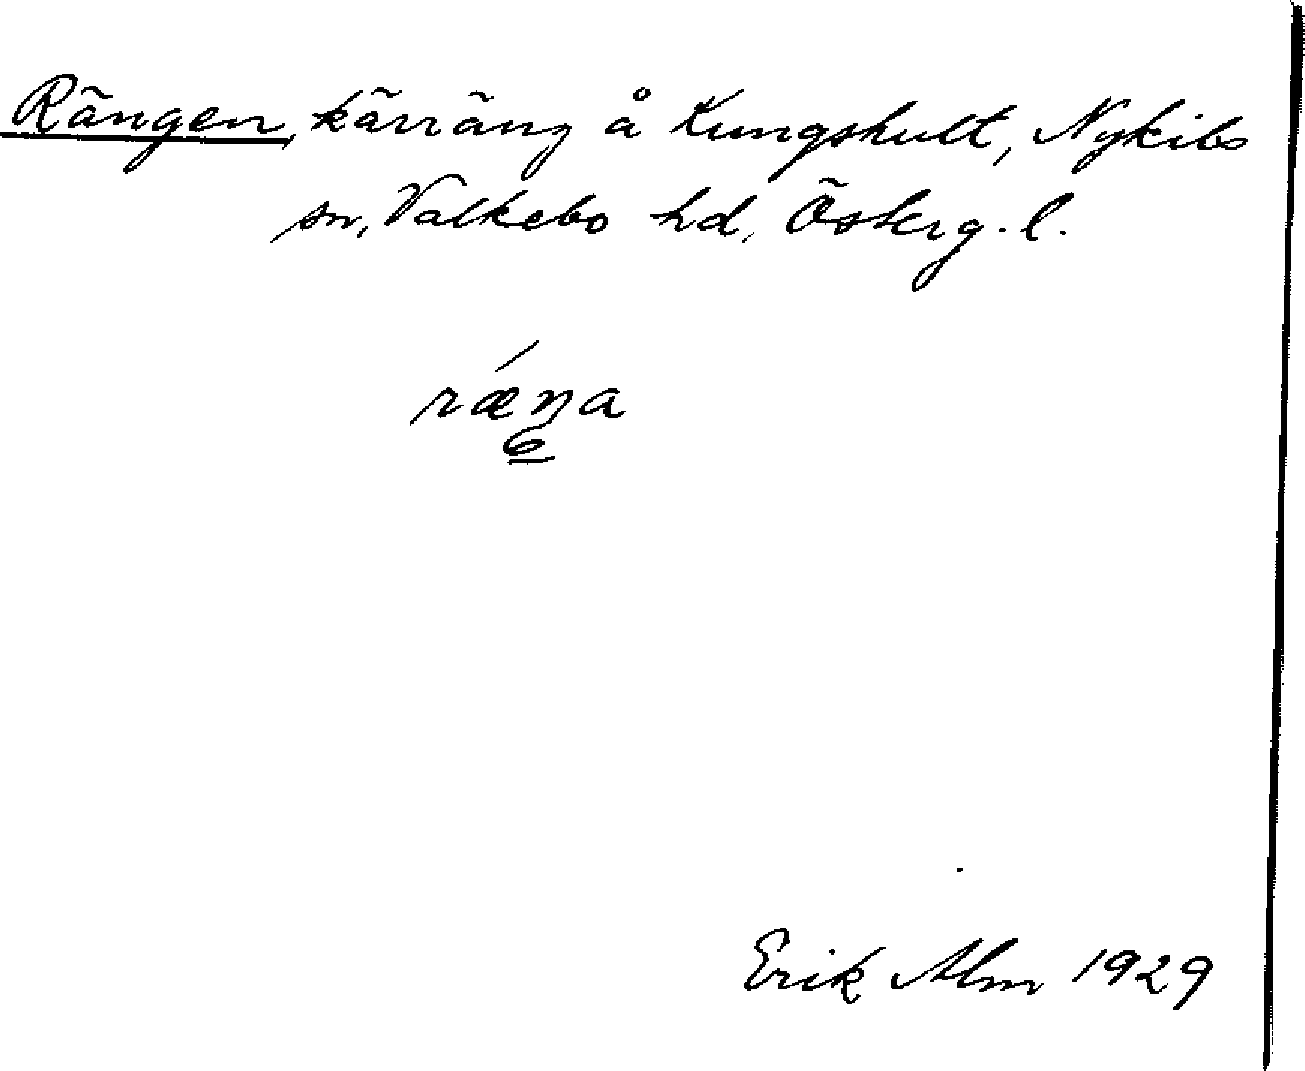 Rängen, kärräng å Kungshult, Nykils
sn, Valkebo hd, Österg. l.
rǽŋa
Erik Alm 1929